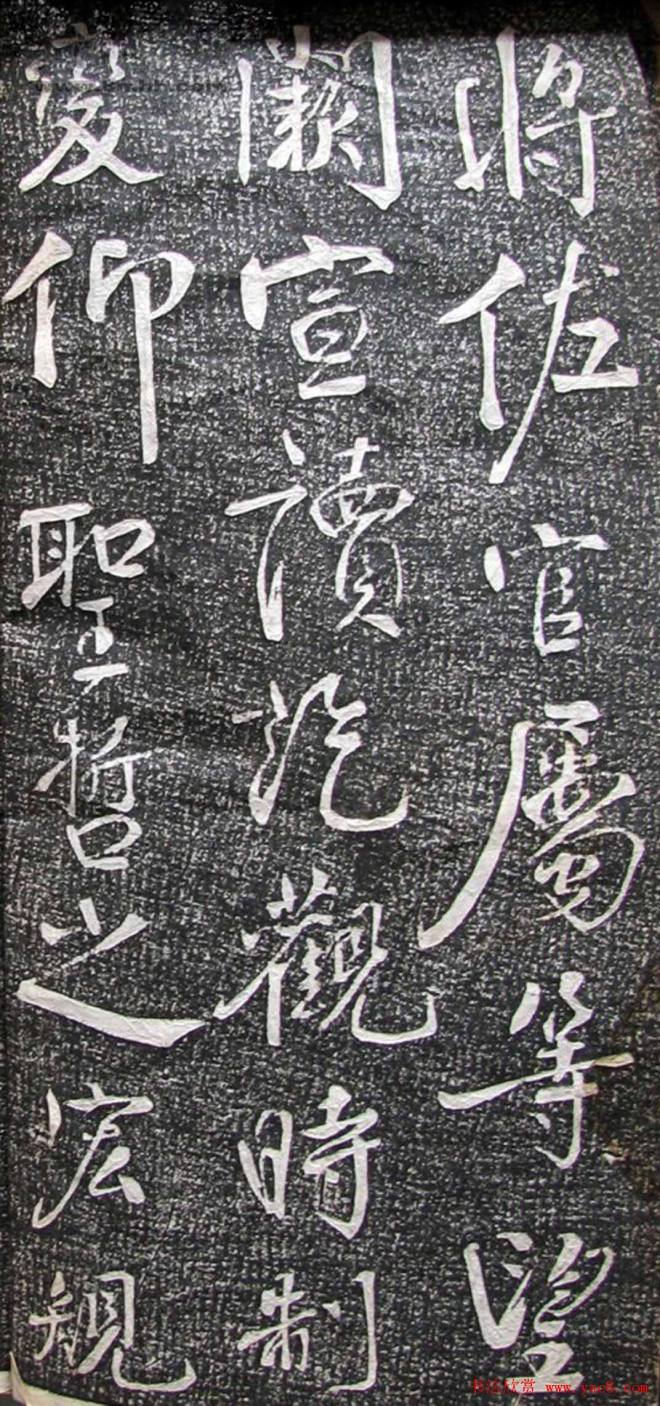 將佐官屬等望
闕宣讀訖觀時制
變仰聖哲之宏規
书法欣赏 www.yac8.com